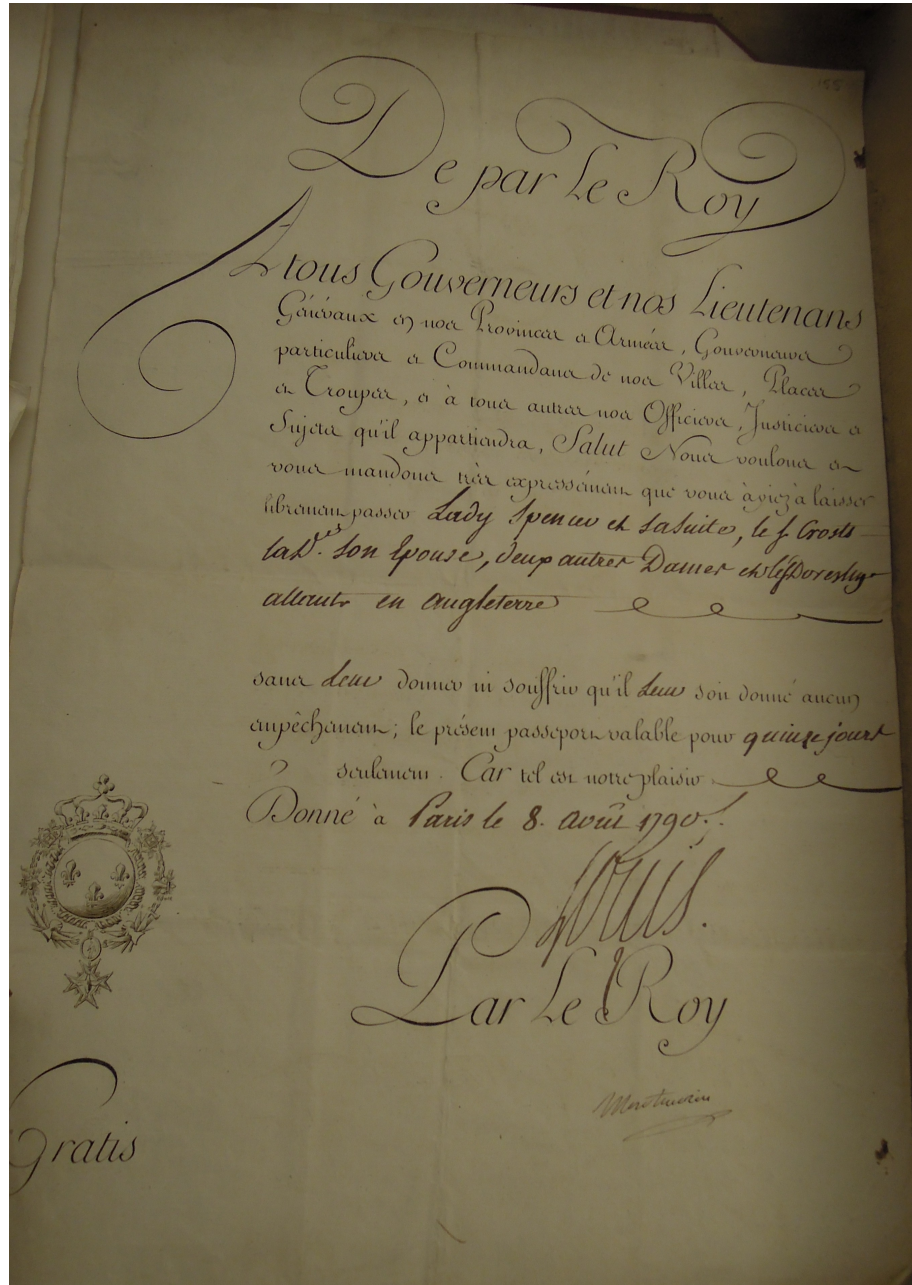 155
De par Le Roy
A tous Gouverneurs et nos Lieutenans
Généraux en nos Provinces et Armées, Gouverneurs
particuliers et Commandans de nos Villes, Places
et Troupes, et à tous autres nos Officiers, Justiciers et
Sujets qu'il appartiendra, Salut Nous voulons et
vous mandons très expressément que vous ayiez à laisser
librement passer Lady Spencer et sa suite, le S.
son Epouse, deux autres Dames et
allants en Angleterre
sans leur donner ni souffrir qu'il leur soit donné aucun
empêchement; le présent passeport valable pour quinze jours
seulement. Car tel est notre plaisir
Donné à Paris le 8. Août 1790.
Louis.
Par Le Roy
Montmorin
Gratis